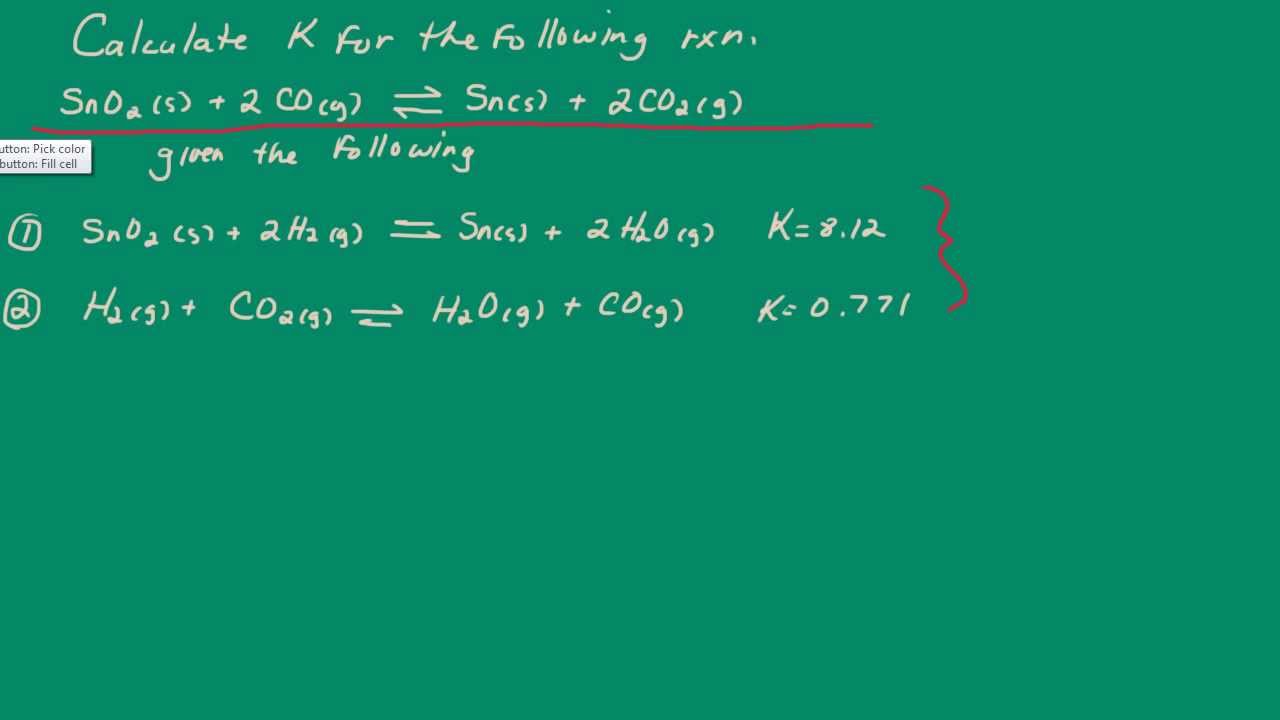 Calculate K for the following rxn.
SnO₂(s) + 2 CO(g) ⇌ Sn(s) + 2CO₂(g)
utton: Pick color
button: Fill cell
given the following
① SnO₂(s) + 2H₂(g) ⇌ Sn(s) + 2H₂O(g) K=8.12
② H₂(g) + CO₂(g) ⇌ H₂O(g) + CO(g) K=0.771